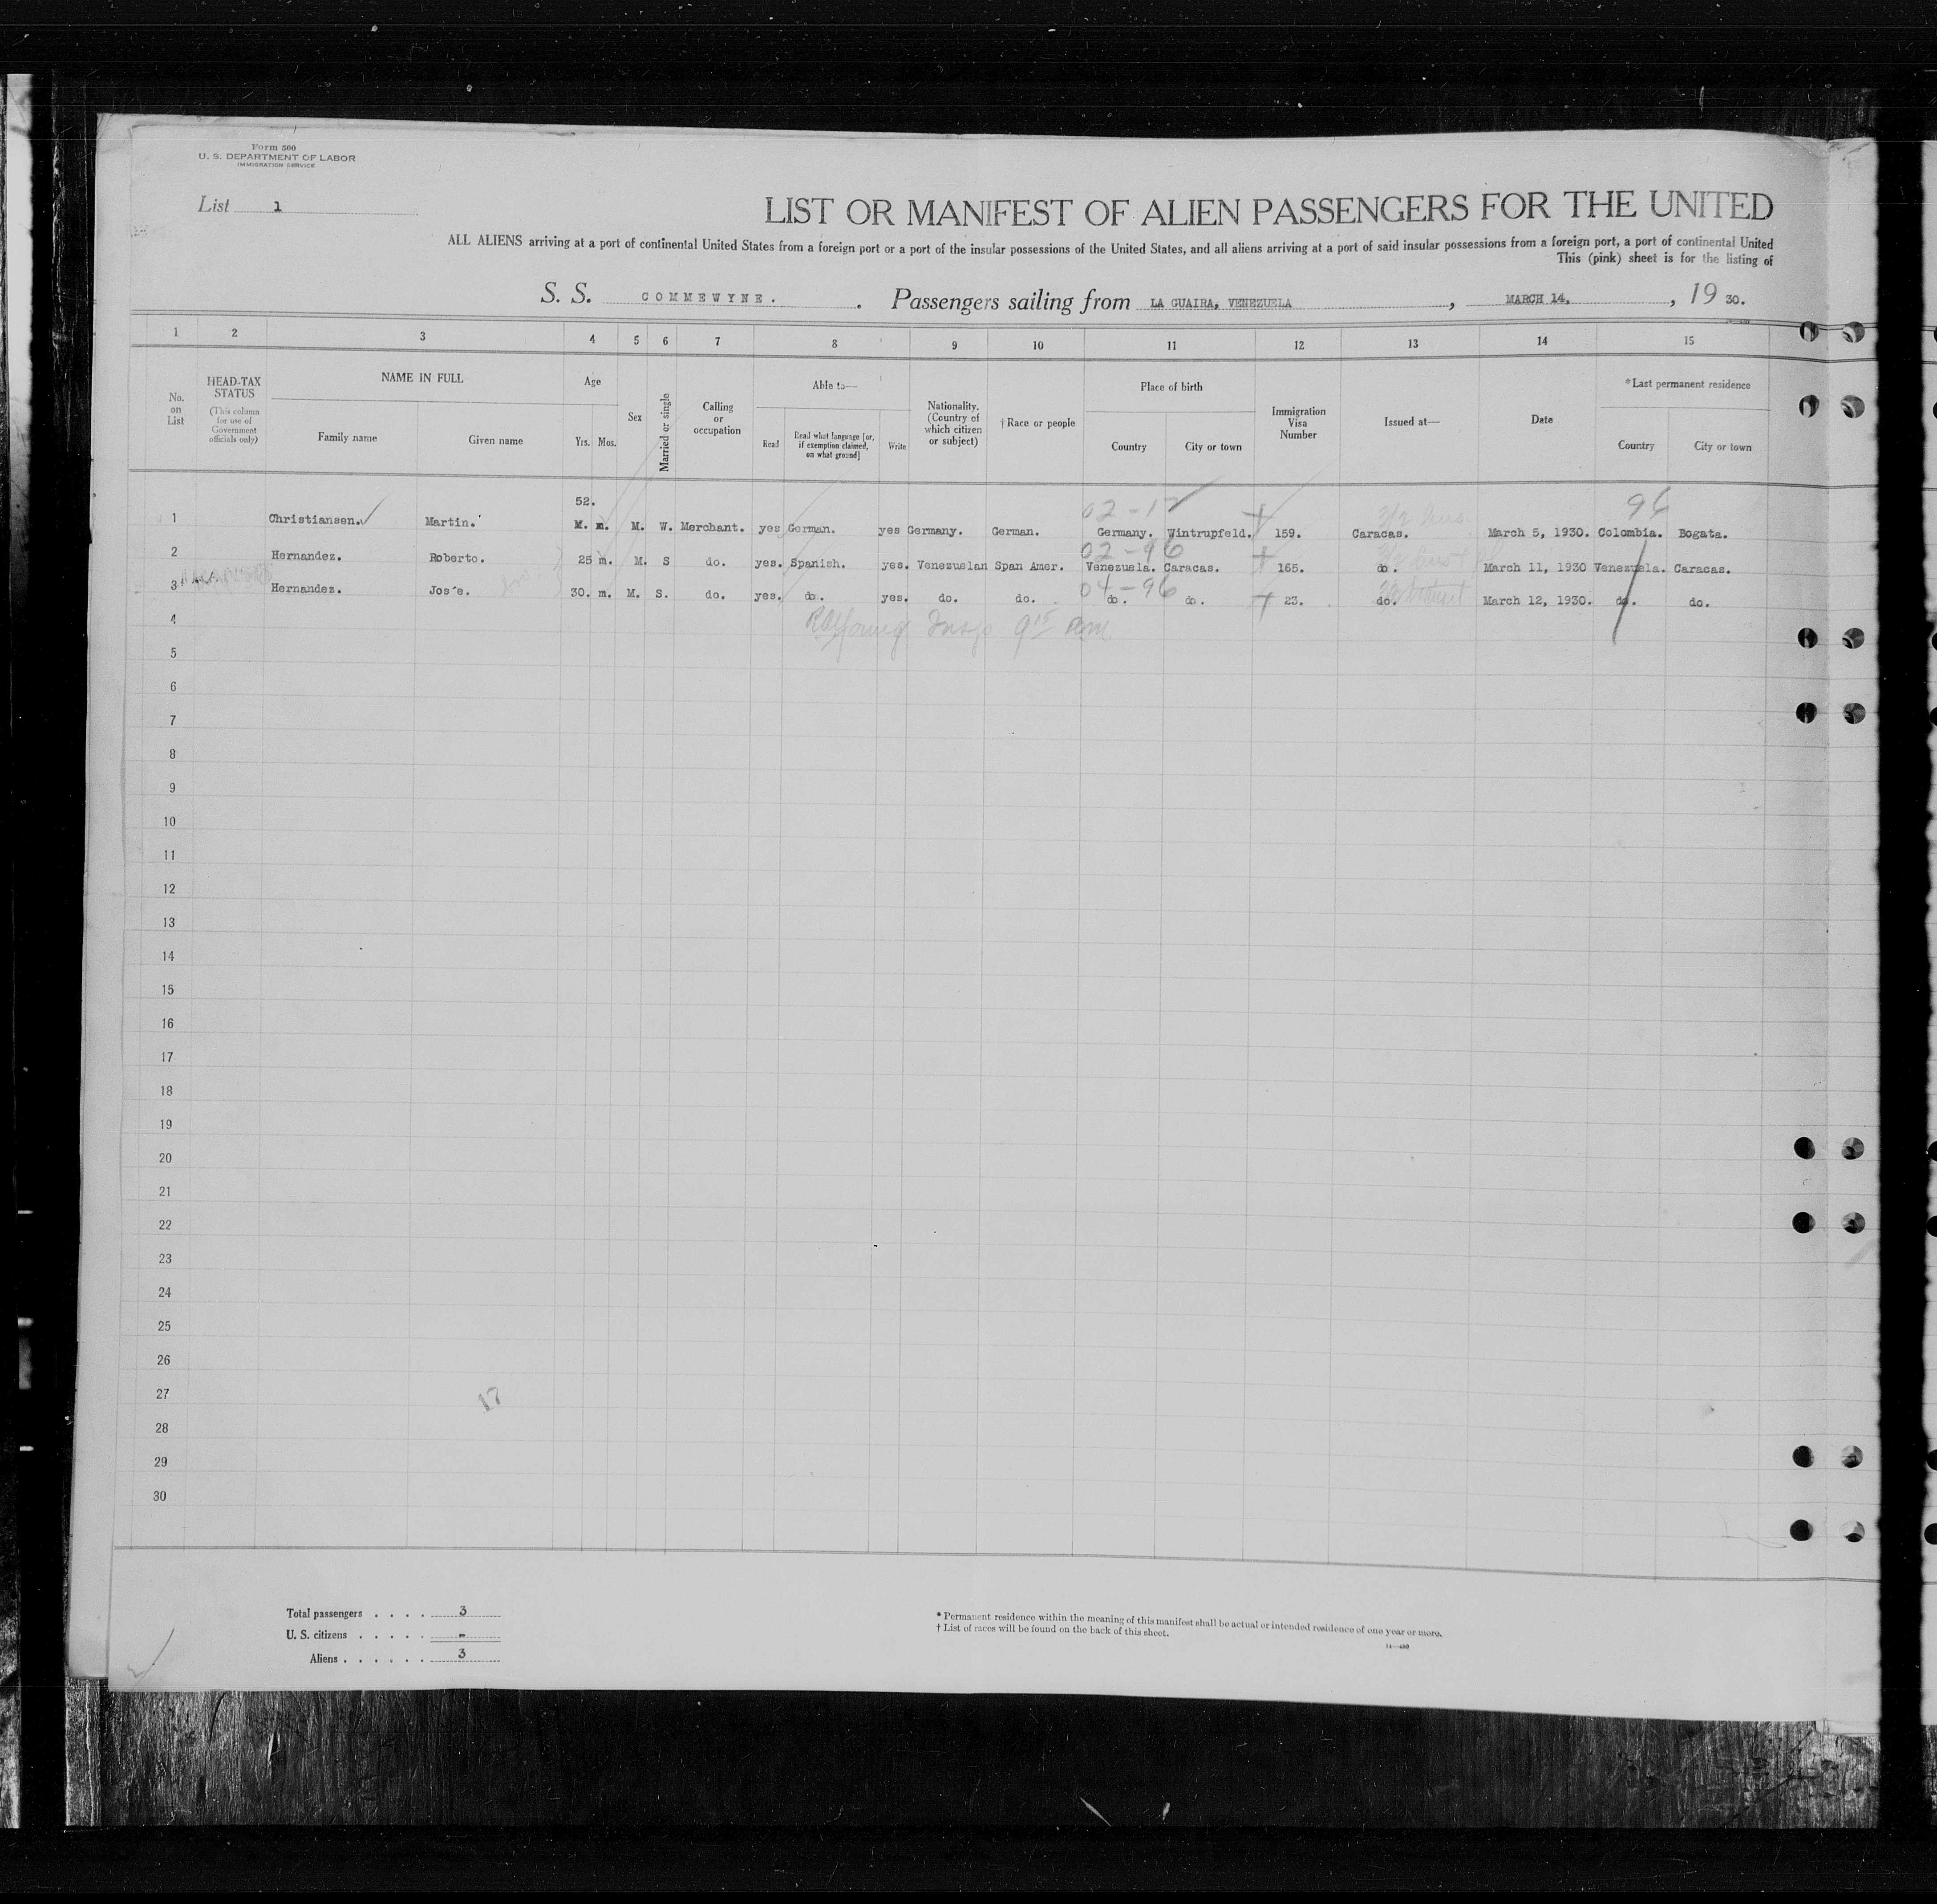 Form 500
U. S. DEPARTMENT OF LABOR
IMMIGRATION SERVICE
List 1
LIST OR MANIFEST OF ALIEN PASSENGERS FOR THE UNITED
ALL ALIENS arriving at a port of continental United States from a foreign port or a port of the insular possessions of the United States, and all aliens arriving at a port of said insular possessions from a foreign port, a port of continental United
This (pink) sheet is for the listing of
S. S. COMMEWYNE. . Passengers sailing from LA GUAIRA, VENEZUELA , MARCH 14, , 19 30.
1 2 3 4 5 6 7 8 9 10 11 12 13 14 15
No. on List
HEAD-TAX STATUS
(This column for use of Government officials only)
NAME IN FULL
Family name Given name
Age
Yrs. Mos.
Sex
Married or single
Calling or occupation
Able to—
Read
Read what language [or, if exemption claimed, on what ground]
Write
Nationality. (Country of which citizen or subject)
† Race or people
Place of birth
Country City or town
Immigration Visa Number
Issued at—
Date
*Last permanent residence
Country City or town
02-17 96
52.
1 Christiansen. Martin. M. m. M. W. Merchant. yes German. yes Germany. German. Germany. Wintrupfeld. 159. Caracas. March 5, 1930. Colombia. Bogata.
02-96
2 Hernandez. Roberto. 25 m. M. S do. yes. Spanish. yes. Venezuelan Span Amer. Venezuela. Caracas. 165. do. March 11, 1930 Venezuela. Caracas.
04-96
3 Hernandez. Jos´e. 30. m. M. S. do. yes. do. yes. do. do. do. do. 23. do. March 12, 1930. do. do.
4 Insp 9 15 am
5
6
7
8
9
10
11
12
13
14
15
16
17
18
19
20
21
22
23
24
25
26
27 17
28
29
30
Total passengers . . . . 3
U. S. citizens . . . . . -
Aliens . . . . . . 3
* Permanent residence within the meaning of this manifest shall be actual or intended residence of one year or more.
† List of races will be found on the back of this sheet.